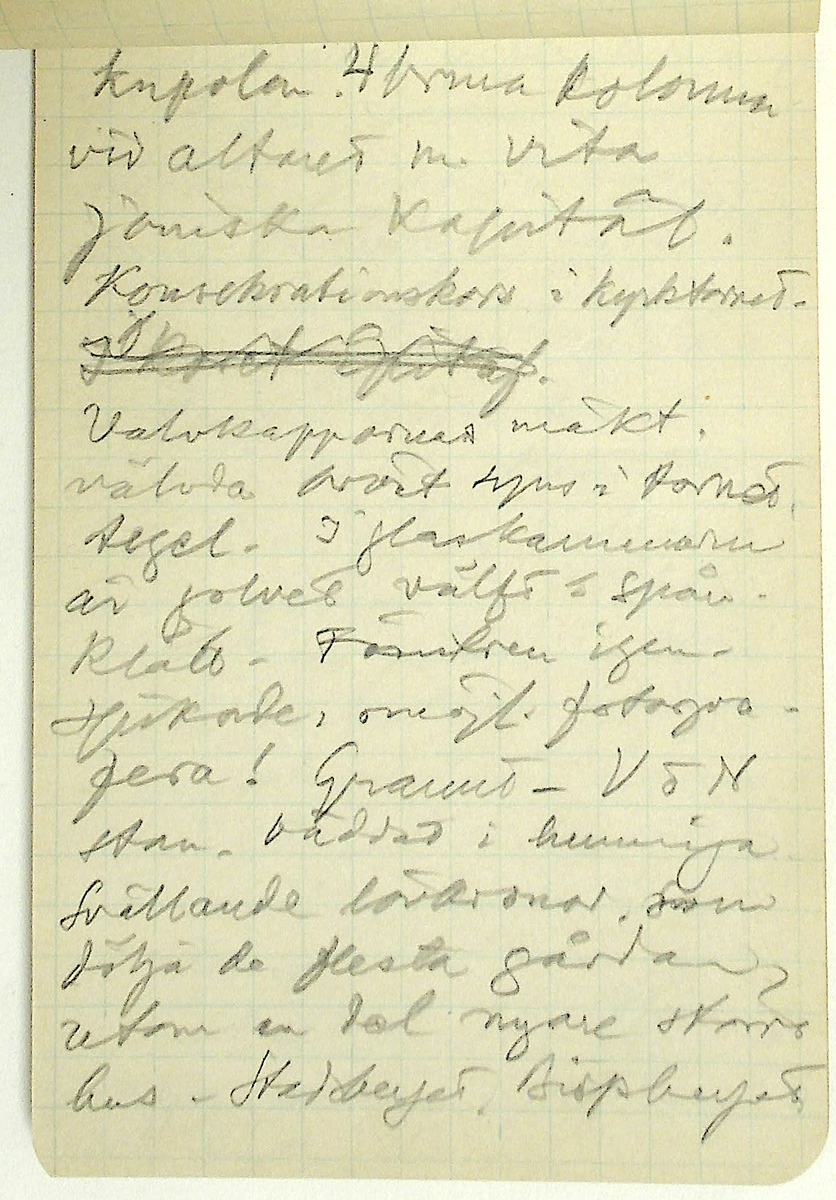 kupolen. 4 bruna kolonner
vid altaret m. vita
joniska kapitäl.
Konsekrationskors i kyrktornet.
Valvkappornas mäkt.
välvda översit syns i tornet.
tegel. I glaskammaren
är golvet välft o spån-
klätt. Fönstren igen-
spikade, omöjl. fotogra-
fera! Granit - V o N
stan. bäddad i hummiga
svällande lövkronor, som
dölja de flesta gårdar,
utom en del nyare större
hus - Stadberget, Biopberget